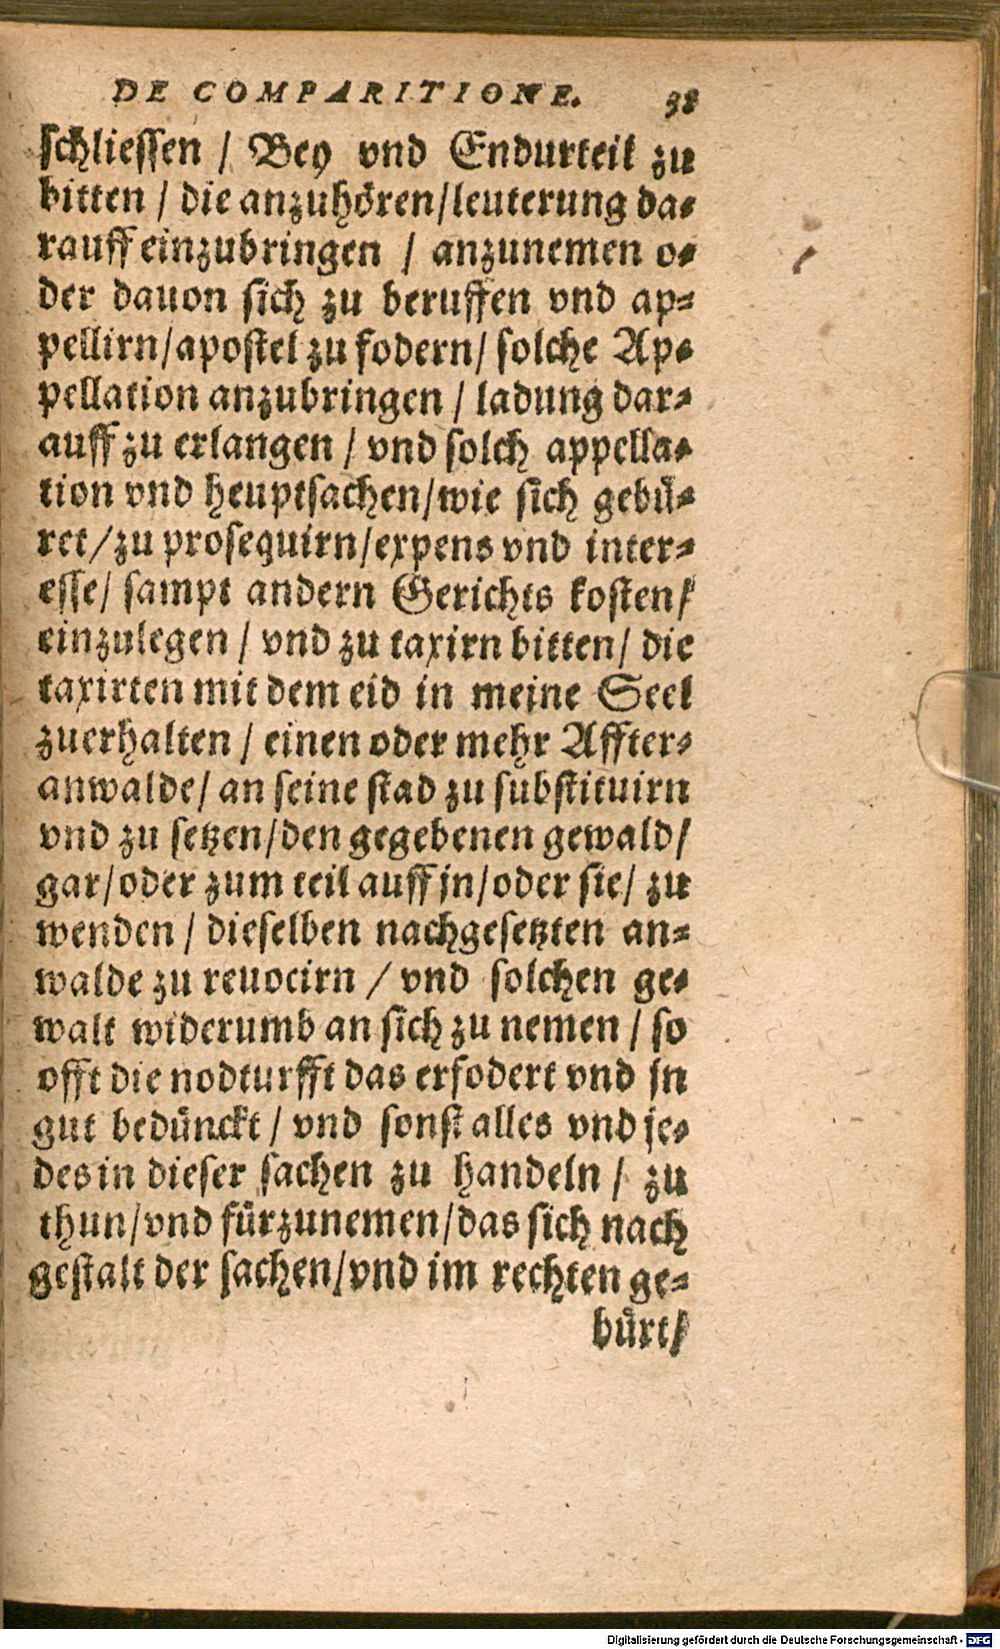 DE COMPARITIONE. 38
schliessen / Bey vnd Endurteil zu
bitten / die anzuhören/leuterung da-
rauff einzubringen / anzunemen o-
der dauon sich zu beruffen vnd ap-
pellirn/apostel zu fodern/ solche Ap-
pellation anzubringen / ladung dar-
auff zu erlangen / vnd solch appella-
tion vnd heuptsachen/wie sich gebü-
ret/zu prosequirn/expens vnd inter-
esse/ sampt andern Gerichts kosten/
einzulegen / vnd zu taxirn bitten/ die
taxirten mit dem eid in meine Seel
zuerhalten / einen oder mehr Affter-
anwalde/ an seine stad zu substituirn
vnd zu setzen/den gegebenen gewald/
gar/oder zum teil auff jn/oder sie/ zu
wenden / dieselben nachgesetzten an-
walde zu reuocirn / vnd solchen ge-
walt widerumb an sich zu nemen / so
offt die nodturfft das erfodert vnd jn
gut bedünckt / vnd sonst alles vnd je-
des in dieser sachen zu handeln / zu
thun/vnd fürzunemen/das sich nach
gestalt der sachen/vnd im rechten ge-
bürt/
Digitalisierung gefördert durch die Deutsche Forschungsgemeinschaft - DFG